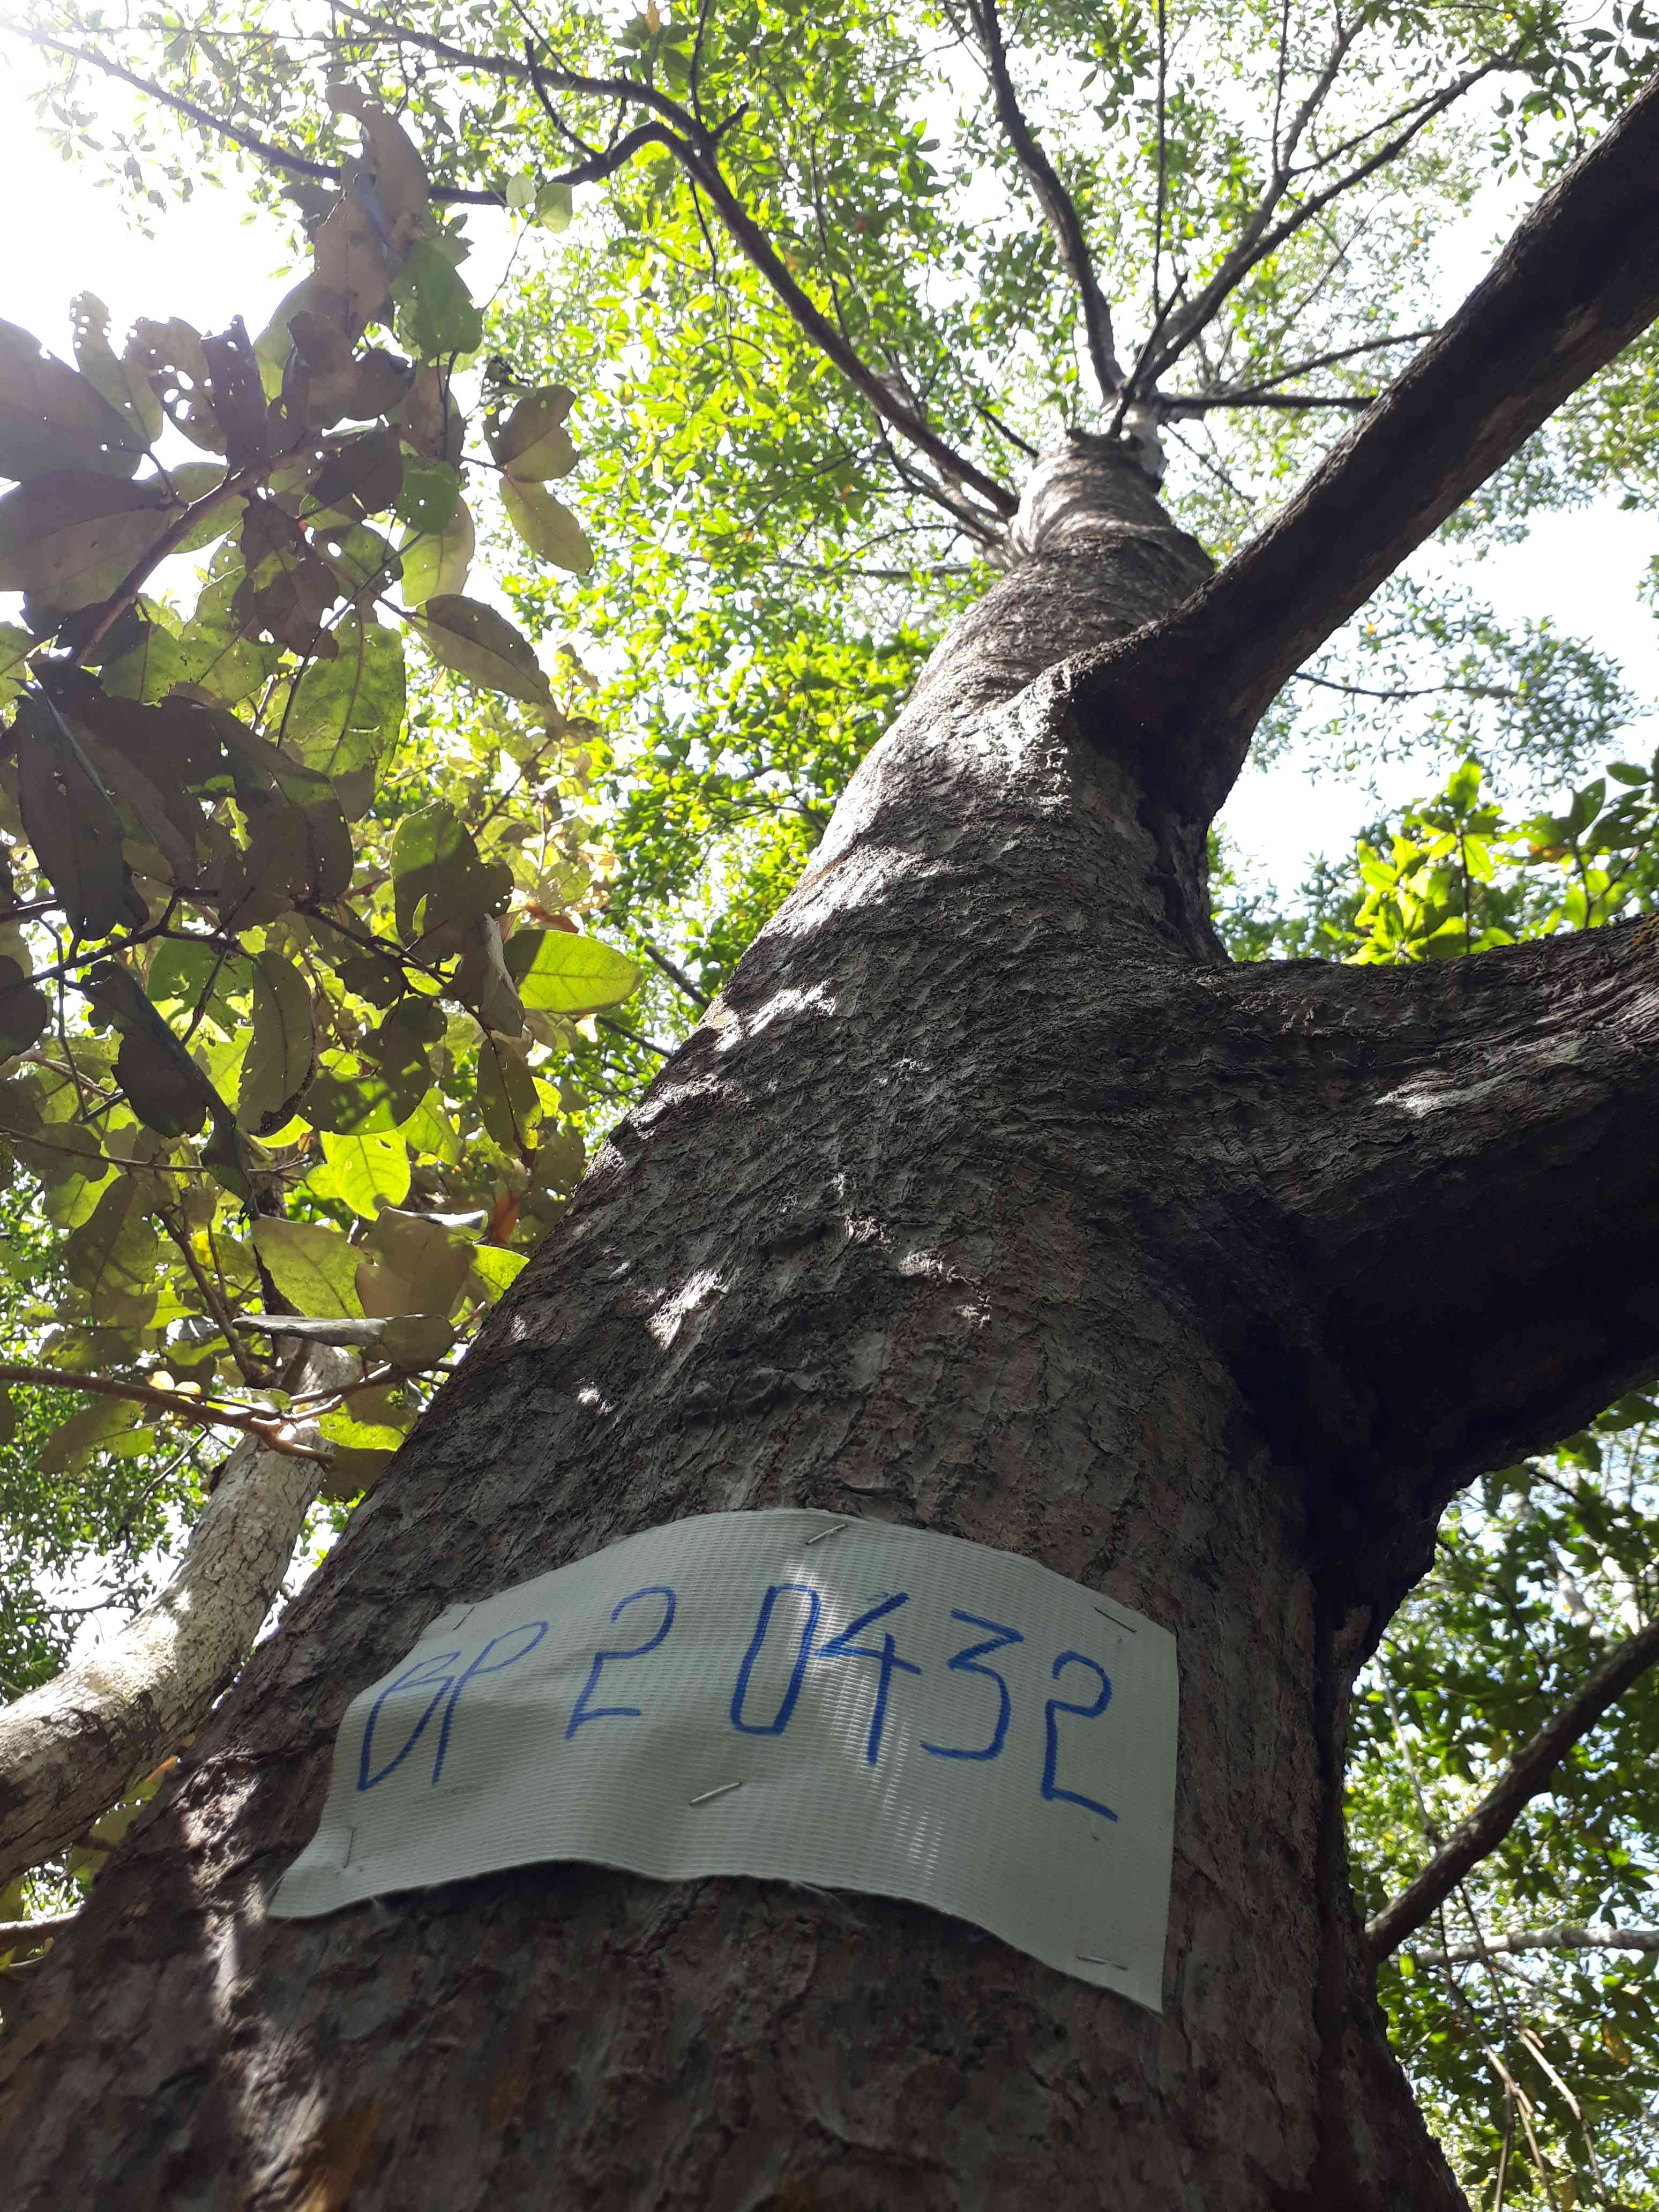 BP 20432